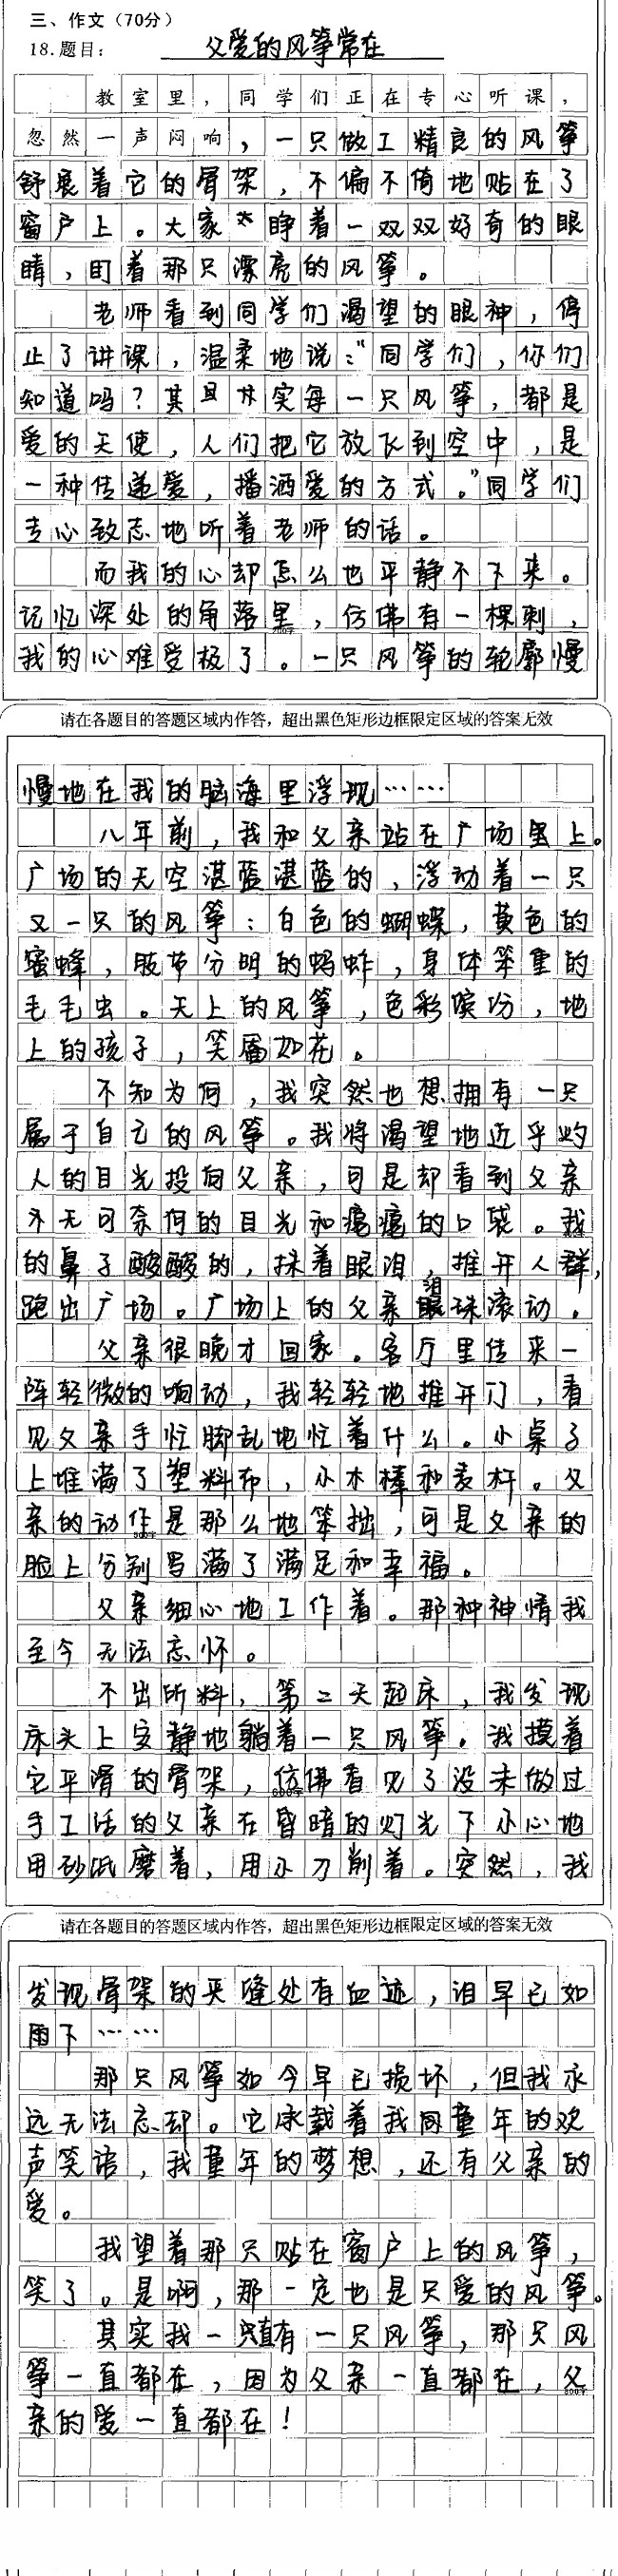 三、作文（70分）
18.题目： 父爱的风筝常在
教室里，同学们正在专心听课，
忽然一声闷响，一只做工精良的风筝
舒展着它的骨架，不偏不倚地贴在了
窗户上。大家睁着一双双好奇的眼
睛，盯着那只漂亮的风筝。
老师看到同学们渴望的眼神，停
止了讲课，温柔地说：“同学们，你们
知道吗？其实每一只风筝，都是
爱的天使，人们把它放飞到空中，是
一种传递爱，播洒爱的方式。”同学们
专心致志地听着老师的话。
而我的心却怎么也平静不下来。
记忆深处的角落里，仿佛有一棵刺，
我的心难受极了。一只风筝的轮廓慢
请在各题目的答题区域内作答，超出黑色矩形边框限定区域的答案无效
慢地在我的脑海里浮现……
八年前，我和父亲站在广场上。
广场的天空湛蓝湛蓝的，浮动着一只
又一只的风筝：白色的蝴蝶，黄色的
蜜蜂，肢节分明的蚂蚱，身体笨重的
毛毛虫。天上的风筝，色彩缤纷，地
上的孩子，笑靥如花。
不知为何，我突然也想拥有一只
属于自己的风筝。我将渴望地近乎灼
人的目光投向父亲，可是却看到父亲
无可奈何的目光和瘪瘪的口袋。我
的鼻子酸酸的，抹着眼泪，推开人群，
跑出广场。广场上的父亲泪珠滚动。
父亲很晚才回家。客厅里传来一
阵轻微的响动，我轻轻地推开门，看
见父亲手忙脚乱地忙着什么。小桌子
上堆满了塑料布，小木棒和麦杆。父
亲的动作是那么地笨拙，可是父亲的
脸上分别写满了满足和幸福。
父亲细心地工作着。那种神情我
至今无法忘怀。
不出所料，第二天起床，我发现
床头上安静地躺着一只风筝。我摸着
它平滑的骨架，仿佛看见了没未做过
手工活的父亲在昏暗的灯光下小心地
用砂纸磨着，用小刀削着。突然，我
请在各题目的答题区域内作答，超出黑色矩形边框限定区域的答案无效
发现骨架的夹缝处有血迹，泪早已如
雨下……
那只风筝如今早已损坏，但我永
远无法忘却。它承载着我同童年的欢
声笑语，我童年的梦想，还有父亲的
爱。
我望着那只贴在窗户上的风筝，
笑了。是啊，那一定也是只爱的风筝。
其实我一直有一只风筝，那只风
筝一直都在，因为父亲一直都在，父
亲的爱一直都在！